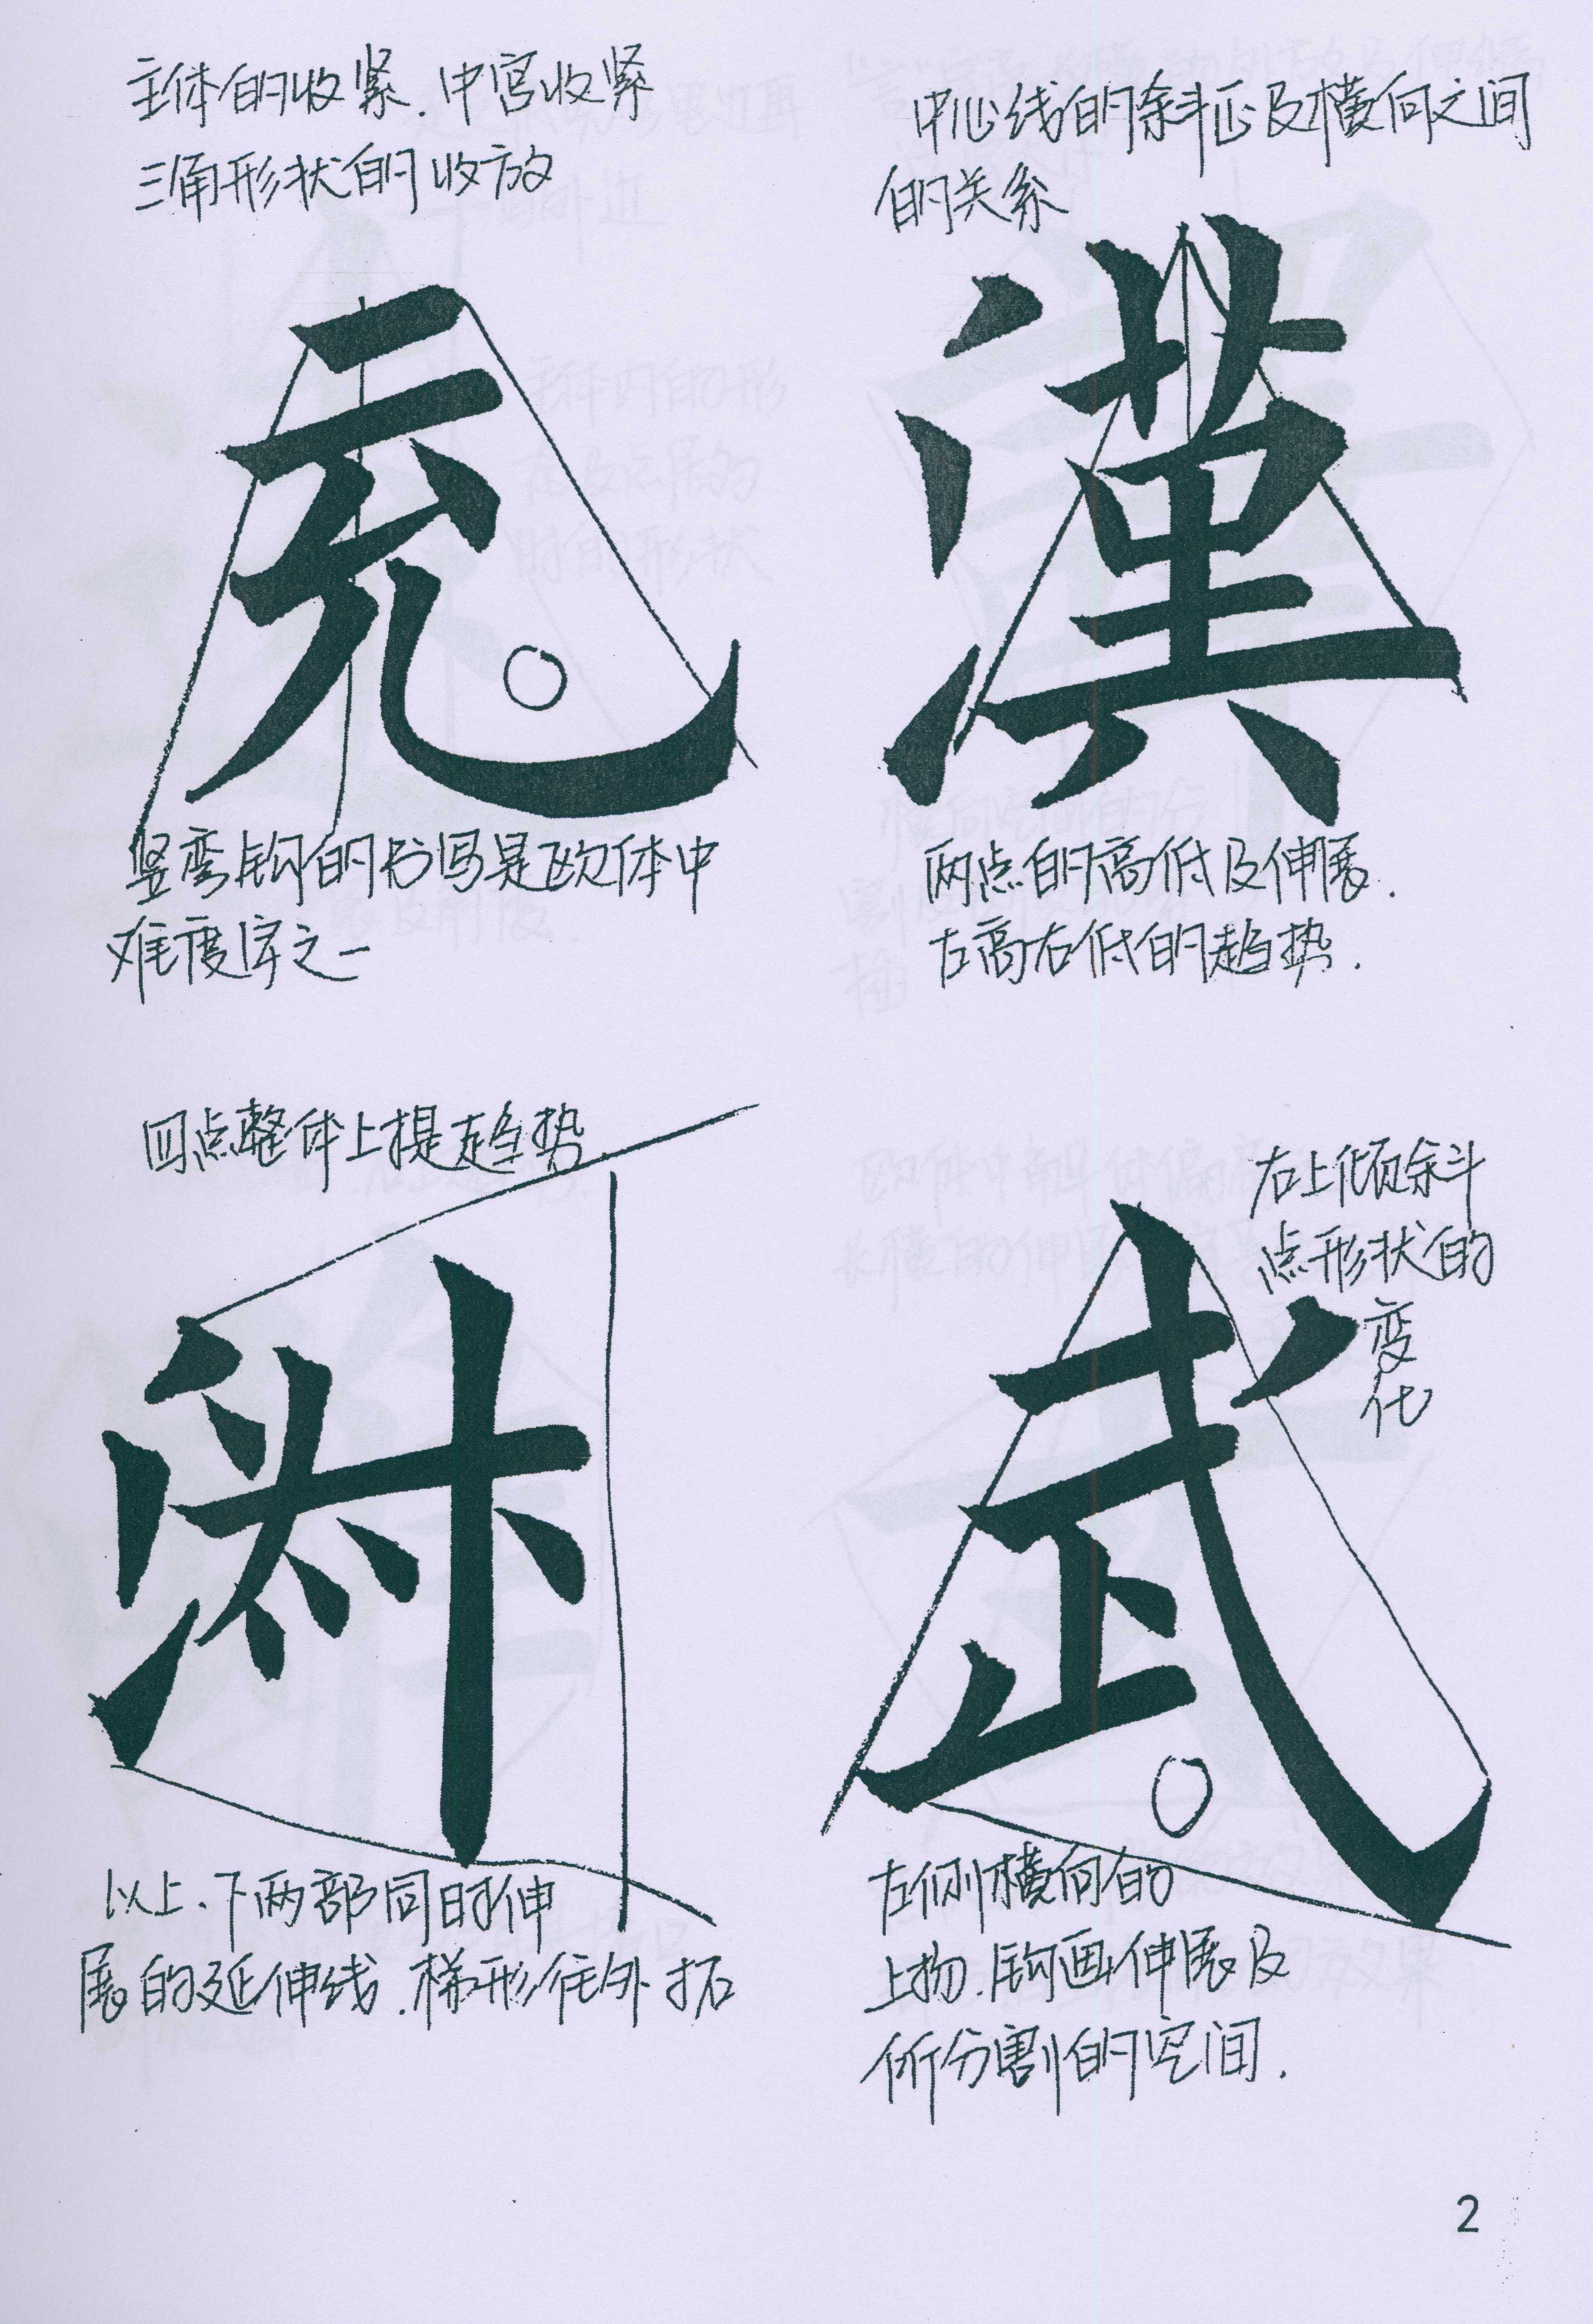 主体的收紧.中宫收紧
三角形状的收放
充
竖弯钩的书写是欧体中
难度字之一
中心线的斜正及横向之间
的关系
漢
两点的高低及伸展.
左高右低的趋势.
四点整体上提趋势.
以上、下两部同时伸
展的延伸线.梯形往外拓
右上倾斜
点形状的
变
化
武
左侧横向的
上扬.钩画伸展及
所分割的空间.
2